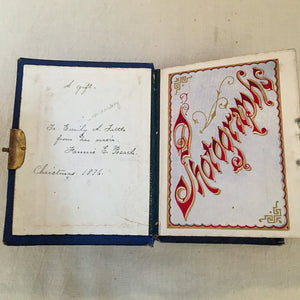 A gift.
To Emily A.
from her niece
Fannie E.
Christmas 1876
Photographs